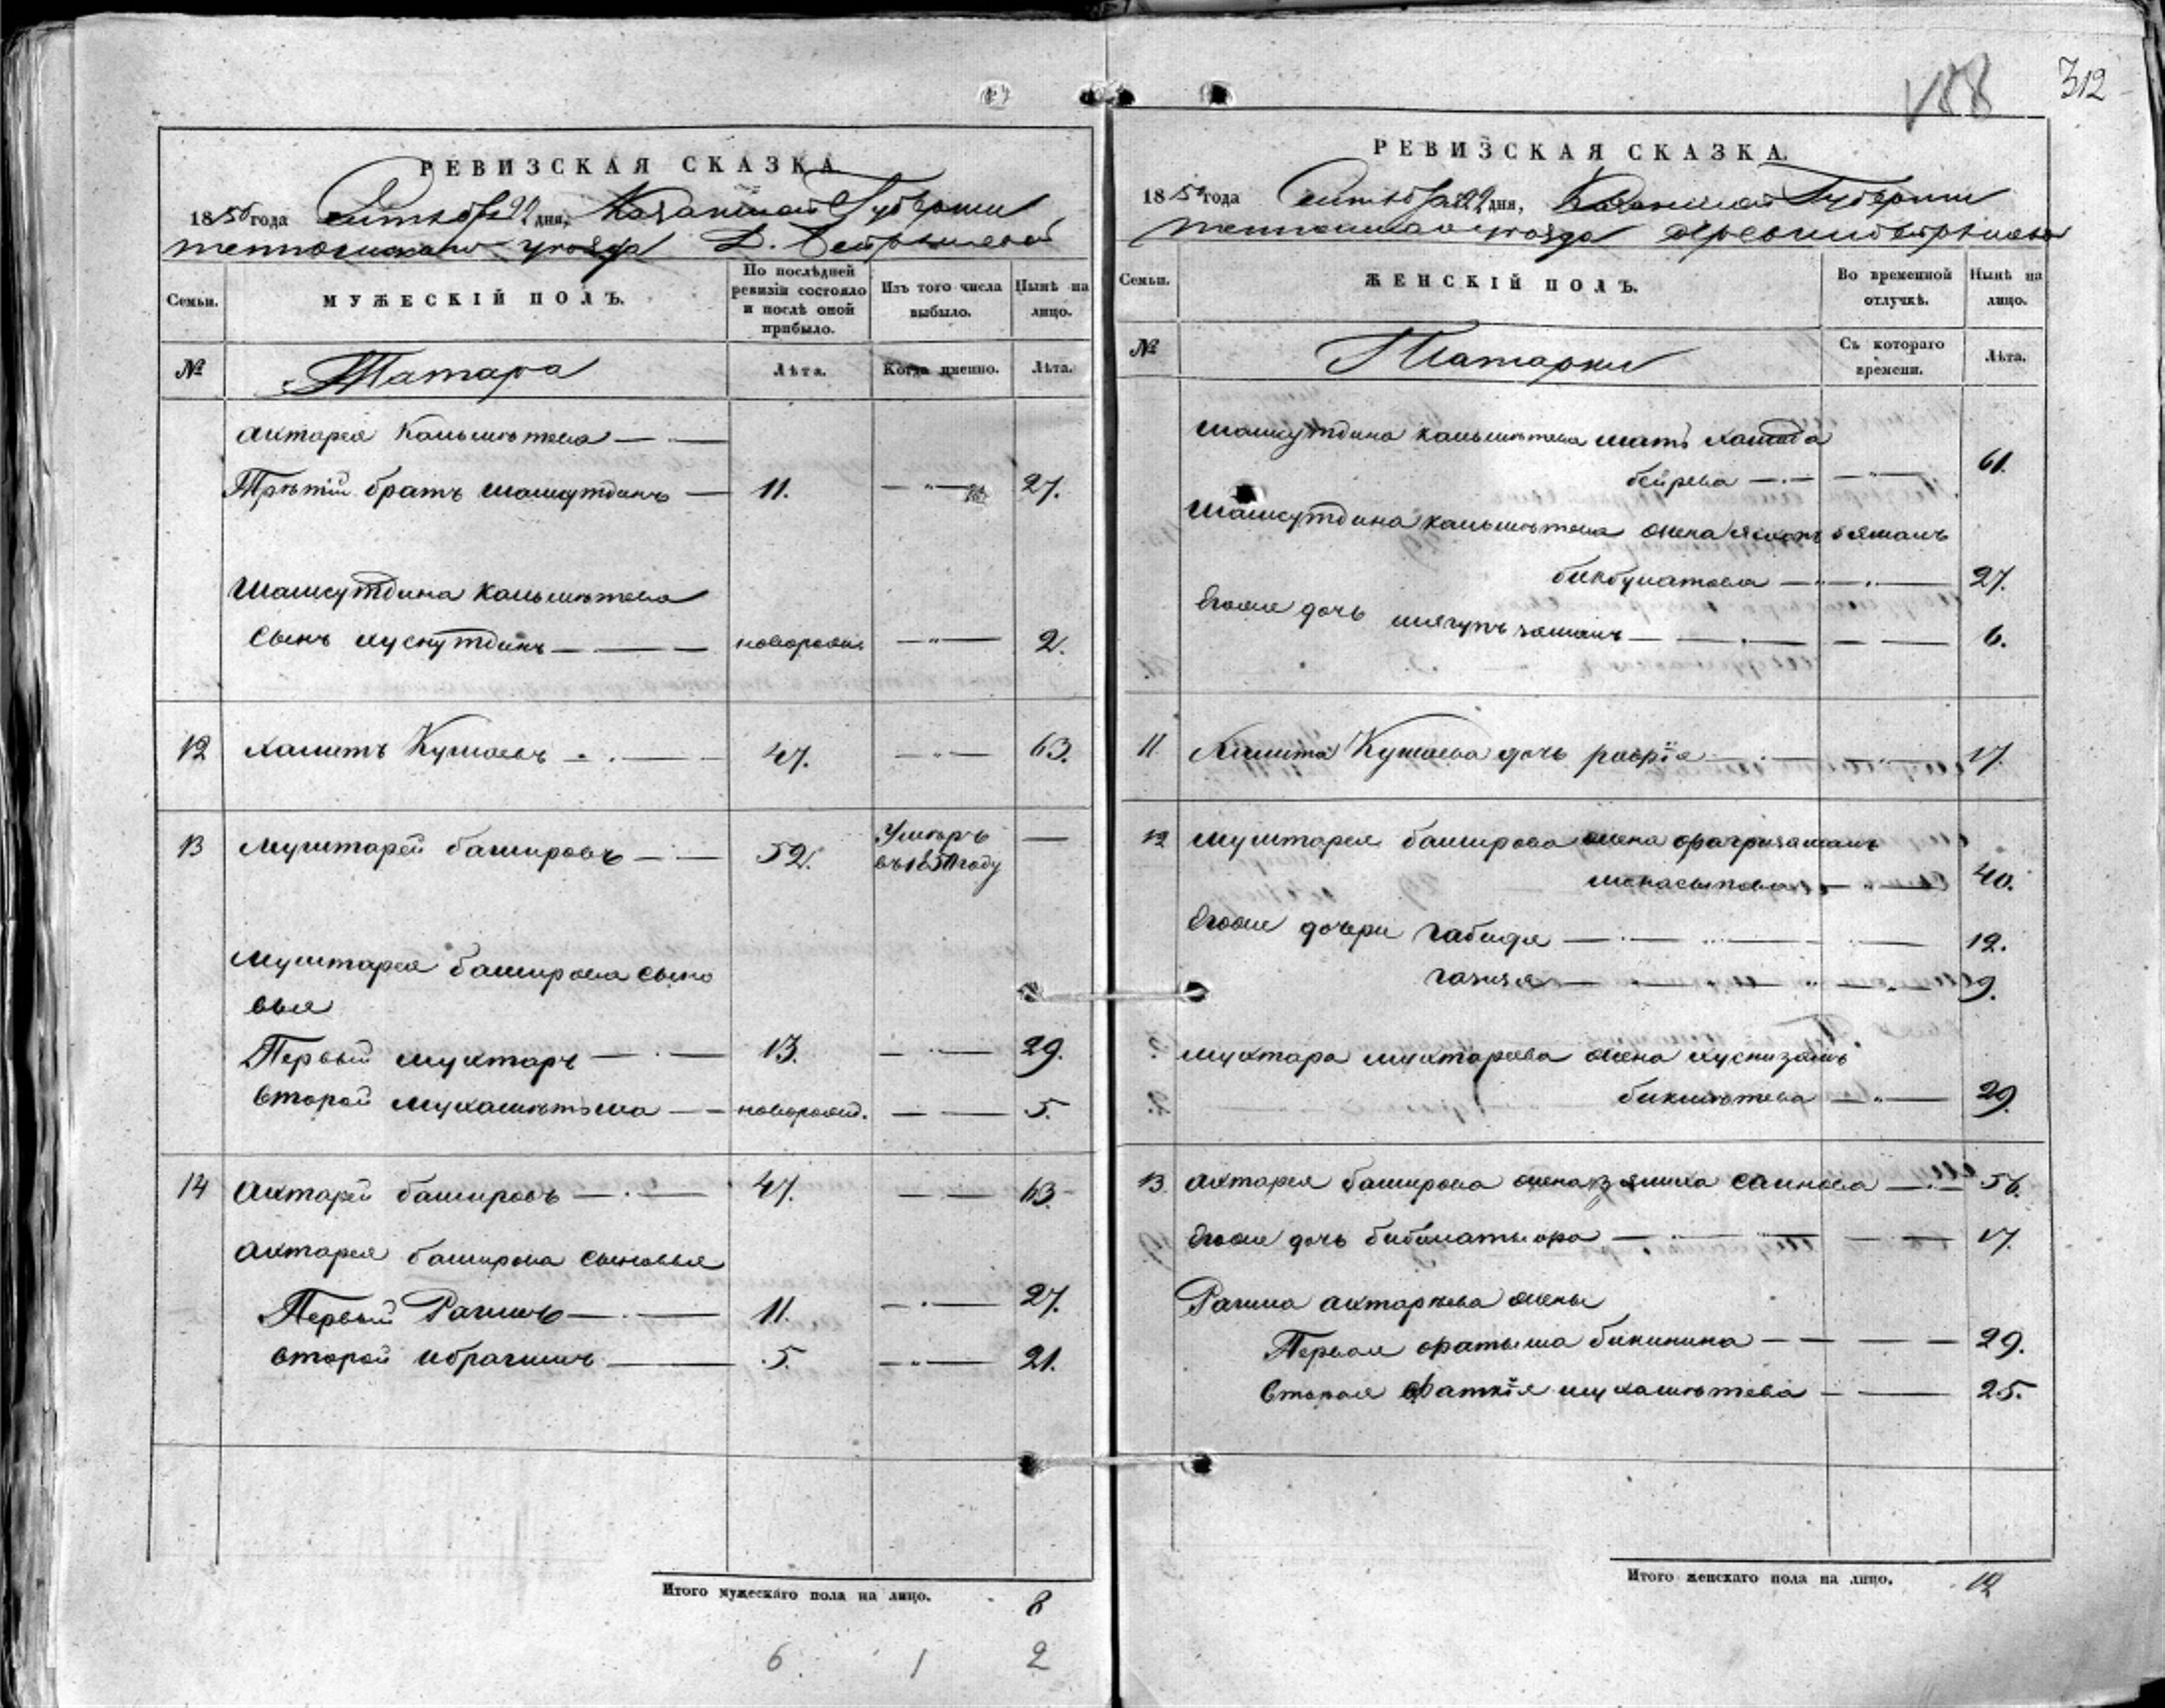 188 312
РЕВИЗСКАЯ СКАЗКА
1850 года Октября 22 дня, Казанской Губернии
Тетюшскаго уезда Д.
Семьи.
МУЖЕСКІЙ ПОЛЪ.
По послѣдней ревизіи состояло и послѣ оной прибыло.
Изъ того числа выбыло.
Нынѣ на лицо.
№
Татара
Лѣта.
Когда именно.
Лѣта.
Ахтарея Кальметева
Третій братъ Шамсутдинъ 11. 27.
Шамсутдина Кальметева
сынъ Хуснутдинъ новорожд. 2.
12 Хамитъ Кутаевъ 47. 63.
13 Муштарей Башировъ 52. Умеръ
въ 1850 году
Муштарея Баширова сыно
вья
Первый Мухтаръ 13. 29.
Второй Мухаметьша новорожд. 5.
14 Ахтарей Башировъ 47. 63.
Ахтарея Баширова сыновья
Первый Рагимъ 11. 27.
Второй Ибрагимъ 5. 21.
Итого мужескаго пола на лицо. 8
6. 1 2
РЕВИЗСКАЯ СКАЗКА.
1850 года Октября 22 дня, Казанской Губерніи
Тетюшскаго уезда деревни
Семьи.
ЖЕНСКІЙ ПОЛЪ.
Во временной отлучкѣ.
Нынѣ на лицо.
№
Татарки
Съ котораго времени.
Лѣта.
Шамсутдина Кальметева мать Хамида
61.
Шамсутдина Кальметева жена
Бикбулатова 27.
Егоже дочь 6.
11 Хамита Кутаева дочь 17.
12 Муштарея Баширова жена
40.
Егоже дочери Габида 12.
Газизя 9.
Мухтара Мухтареева жена Хуснизамъ
Бикметева 29.
13 Ахтарея Баширова жена Саинова 56.
Егоже дочь 17.
Рагима Ахтареева жены
Первая Фатьша Бикинина 29.
Вторая Мухаметева 25.
Итого женскаго пола на лицо. 12